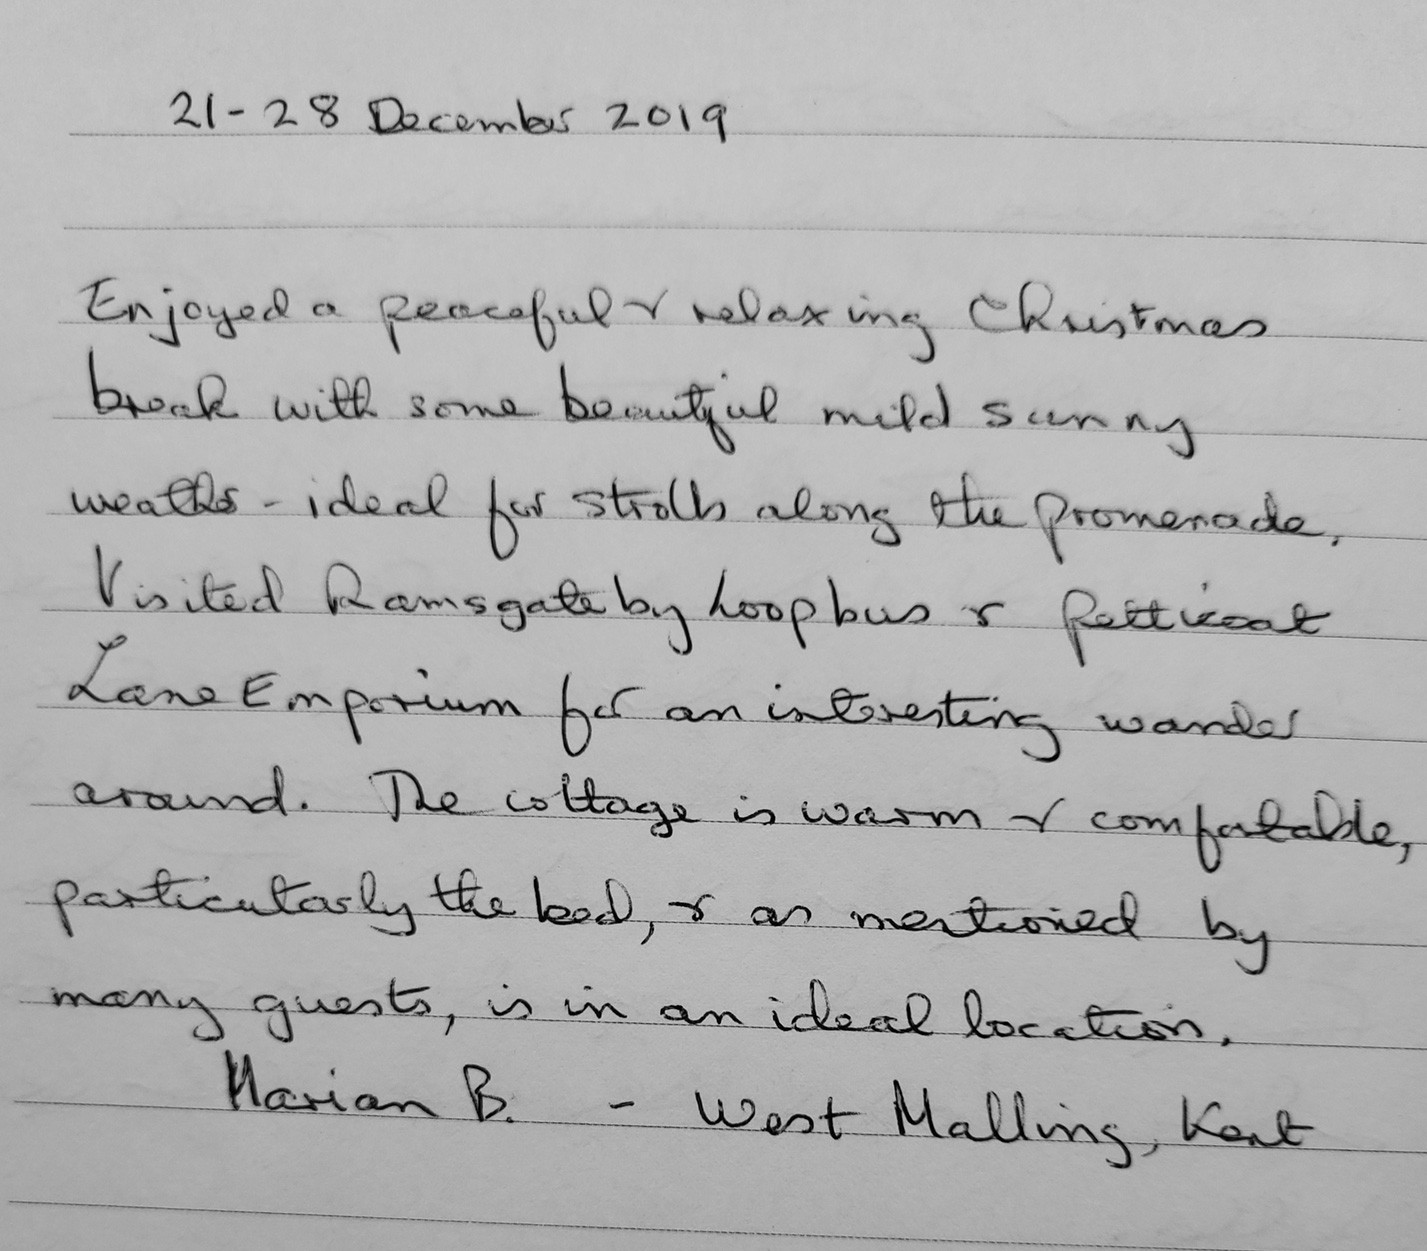 21-28 December 2019
Enjoyed a peaceful & relaxing Christmas
break with some beautiful mild sunny
weather - ideal for strolls along the promenade.
Visited Ramsgate by Loop bus & Petticoat
Lane Emporium for an interesting wander
around. The cottage is warm & comfortable,
particularly the bed, & as mentioned by
many guests, is in an ideal location.
Marian B. - West Malling, Kent